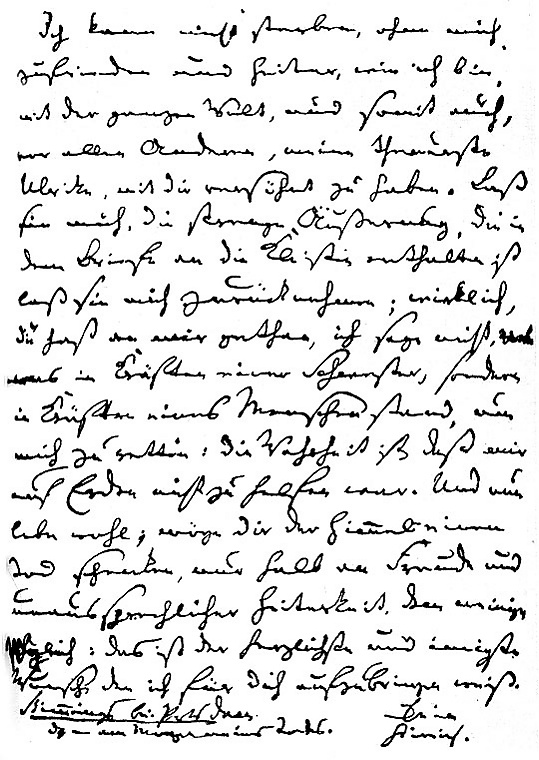 Ich kann nicht sterben, ohne mich,
zufrieden und heiter, wie ich bin,
mit der ganzen Welt, und somit auch,
vor allen Anderen, meine theuerste
Ulrike, mit dir versöhnt zu haben. Laß
sie mich, die strenge Äußerung, die in
dem Briefe an die Kleisten enthalten ist
laß sie mich zurücknehmen; wirklich,
du hast an mir gethan, ich sage nicht,
was in Kräften einer Schwester, sondern
in Kräften eines Menschen stand, um
mich zu retten: die Wahrheit ist, daß mir
auf Erden nicht zu helfen war. Und nun
lebe wohl; möge dir der Himmel einen
Tod schenken, nur halb an Freude und
unaussprechlicher Heiterkeit, dem meinigen
gleich: das ist der herzlichste und innigste
Wunsch, den ich für dich aufzubringen weiß.
Stimmings bei Potsdam
d. — am Morgen meines Todes.
Dein
Heinrich.